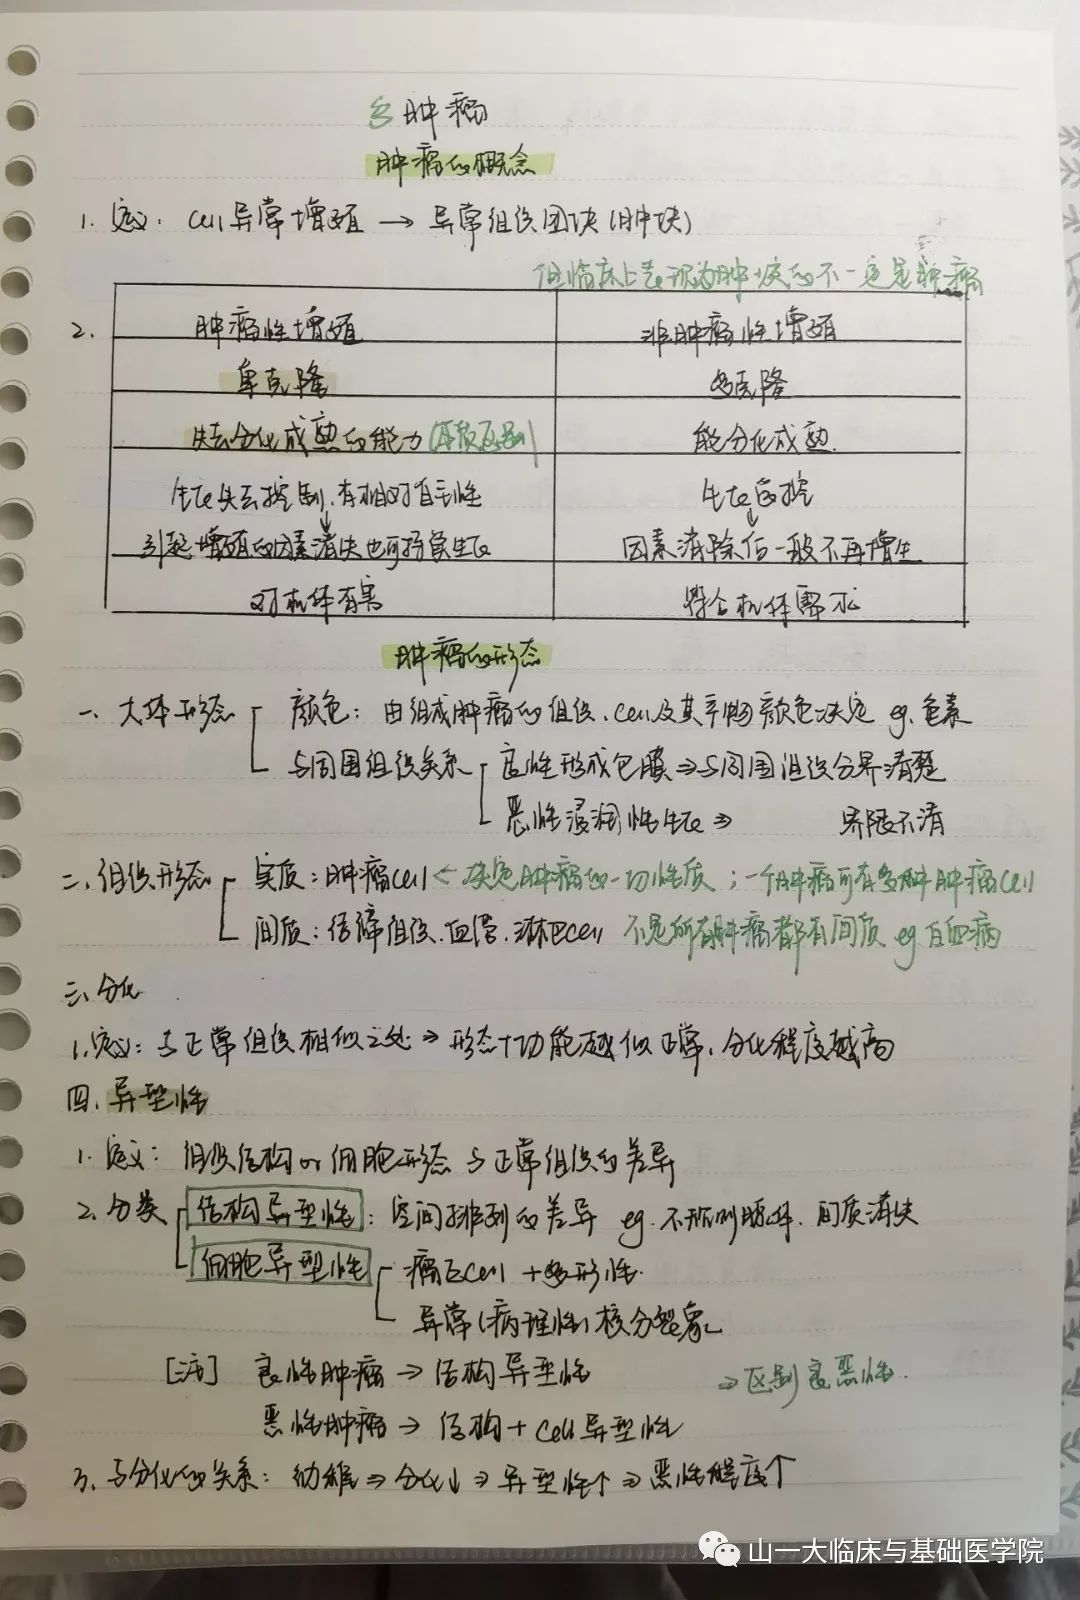 肿瘤
肿瘤的概念
1. 定义: cell异常增殖 → 异常组织团块(肿块)
但临床上表现为肿块的不一定是肿瘤
2. 肿瘤性增殖 非肿瘤性增殖
单克隆 多克隆
失去分化成熟的能力(本质区别) 能分化成熟
生长失去控制,有相对自主性 生长自控
↓ ↓
引起增殖的因素消失也可持续生长 因素消除后一般不再增生
对机体有害 符合机体需求
肿瘤的形态
一、大体形态 颜色: 由组成肿瘤的组织、cell及其产物颜色决定 eg. 色素
与周围组织关系 良性形成包膜⇒与周围组织分界清楚
恶性浸润性生长⇒ 界限不清
二、组织形态 实质: 肿瘤cell ← 决定肿瘤的一切性质; 一个肿瘤可有多种肿瘤cell
间质: 结缔组织、血管、淋巴cell 不是所有肿瘤都有间质 eg 白血病
三、分化
1.定义: 与正常组织相似之处⇒形态+功能越似正常,分化程度越高
四、异型性
1. 定义: 组织结构or细胞形态与正常组织的差异
2. 分类 结构异型性: 空间排列的差异 eg. 不形成腺体、间质消失
细胞异型性 瘤巨cell + 多形性
异常(病理性)核分裂象
[注] 良性肿瘤 → 结构异型性 ⇒区别良恶性.
恶性肿瘤 → 结构 + cell异型性
3. 与分化的关系: 幼稚⇒分化↓⇒异型性↑⇒恶性程度↑
山一大临床与基础医学院